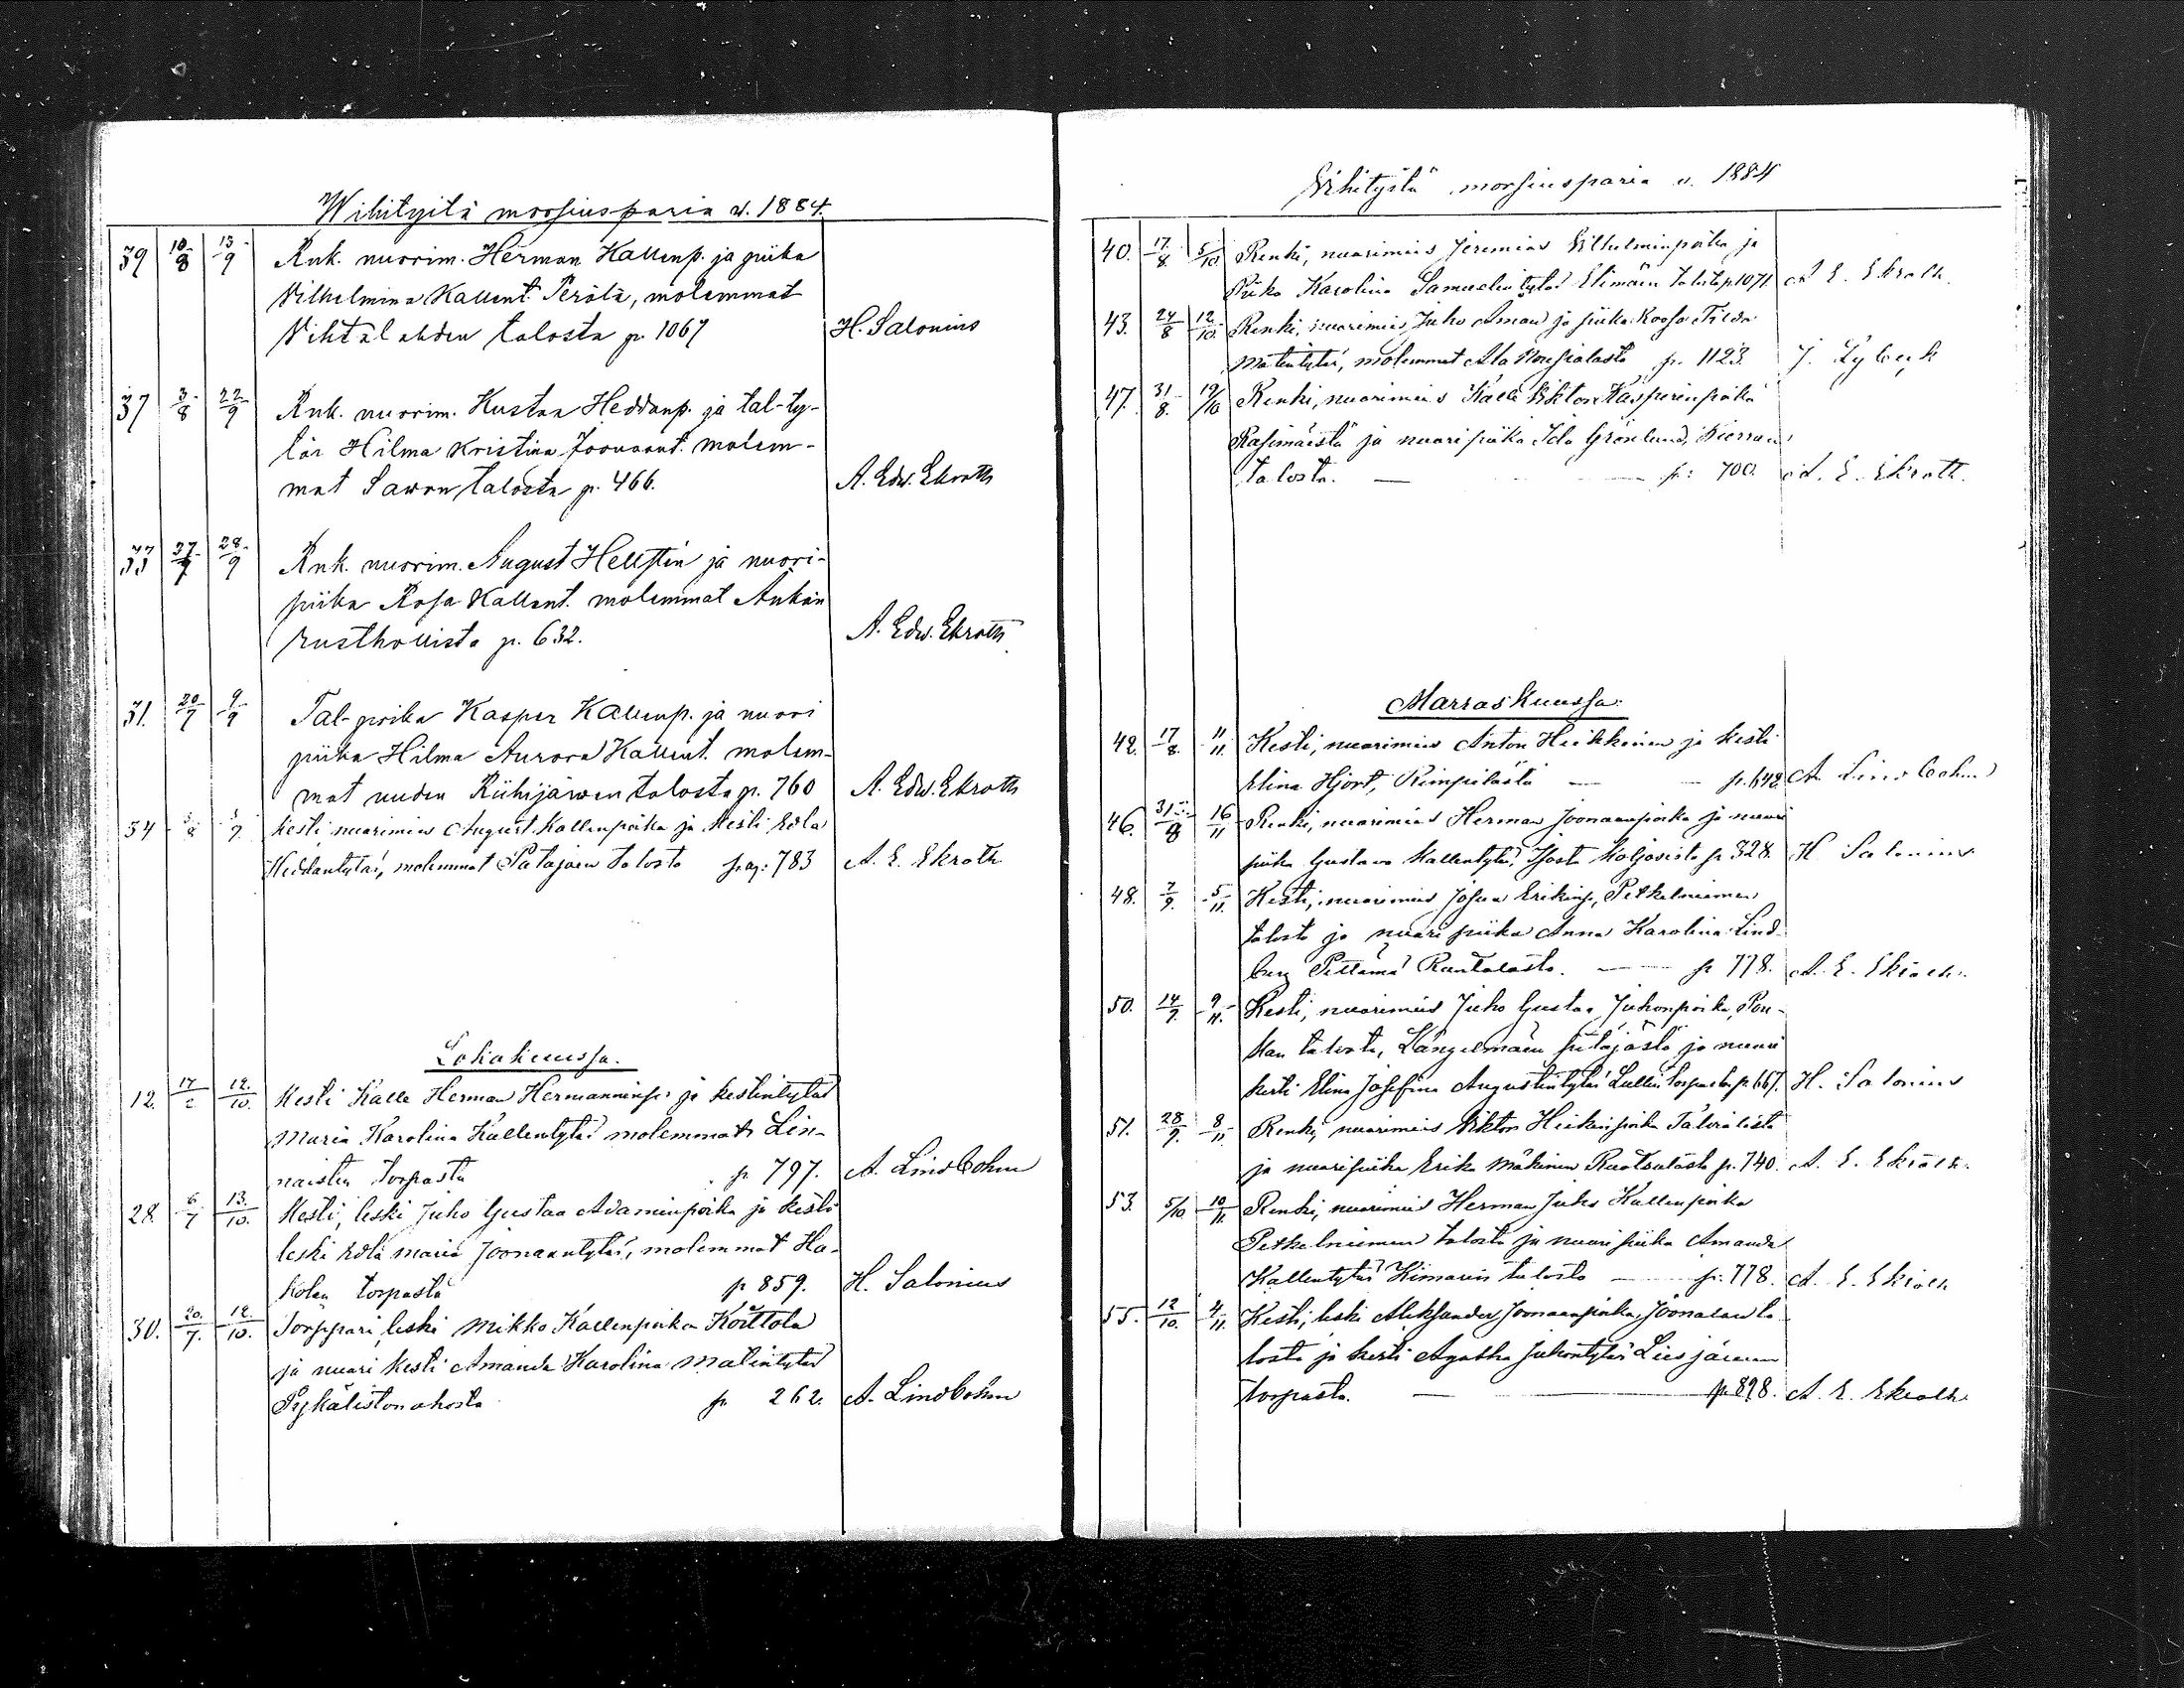 Wihityitä morsiusparia v. 1884.
39 10/8 13/9 Rnk. nuorim. Herman Kallenp. ja piika
Vilhelmina Kallent. Perälä, molemmat
Vihtalahden talosta p. 1067 H. Salonius
37 3/8 22/9 Rnk. nuorim. Kustaa Heddanp. ja tal-ty-
tär Hilma Kristina Joonaant. molem-
mat Sawon talosta p. 466. A. Edw. Ekroth
33 27/7 28/9 Rnk. nuorim. August Hellstén ja nuori-
piika Rosa Kallent. molemmat
rusthollista p. 632. A. Edw. Ekroth
31. 20/7 9/9 Tal-poika Kasper Kallenp. ja nuori
piika Hilma Aurora Kallent. molem-
mat uuden Riihijärwen talosta p. 760 A. Edw. Ekroth
54 kesti nuorimies August Kallenpoika ja kesti Edla
Heddantytär, molemmat Patajoen talosta pag: 783 A. E. Ekroth
Lokakuussa.
12. 17/2 12./10. Kesti Kalle Herman Hermanninp. ja kestintytär
Maria Karolina Kallentytär molemmat Lin-
naisten torpasta p 797. A. Lindbohm
28. 6/7 13./10. Kesti, leski Juho Gustaa Adaminpoika ja kesti
leski Edla Maria Joonaantytär, molemmat Ha-
kolan torpasta p 859. H. Salonius
30. 20./7. 12./10. Torppari, leski Mikko Kallenpoika Koittola
ja nuori kesti Amanda Karolina Matintytär
Pykälistönahosta p 262. A. Lindbohm
Vihityitä morsiusparia v. 1884
40. 17/8. 5/10. Renki, nuorimies Jeremias Vilhelminpoika ja
Piika Karolina Samuelintytär Elimäen talosta p 1071. A E. Ekroth.
43. 24/8 12./10. Renki, nuorimies Juho Aman ja piika Roosa Tilda
Matintytär, molemmat p. 1123. J. Lybeck
47. 31/8. 19/10 Renki, nuorimies Kalle Viktor Kasperinpoika
Rasimäestä ja nuori piika Ida Grönlund,
talosta. — p: 700. A. E. Ekroth.
Marraskuussa.
42. 17/8. 11/11. Kesti, nuorimies Anton Heikkinen ja kesti
Elina Hjort, Rimpilästä — p. 648. A Lindbohm
46. 31/8 16/11 Renki, nuorimies Herman Joonaanpoika ja nuori
piika Gustava Kallentytär, Isosta Koljosista p 328. H. Salonius
48. 7/9. 5/11. Kesti, nuorimies Josua Erikinp., Petkelniemen
talosta ja nuori piika Anna Karolina Lind-
berg Ruutalasta. — p 778. A. E. Ekroth.
50. 14/9. 9/11. Kesti, nuorimies Juho Gustaa Juhonpoika, Pou-
kan talosta, Längelmäen pitäjästä ja nuori
kesti Elina Josefina Augustintytär Lullin torpasta p. 667. H. Salonius
51. 28/9. 8/11. Renki, nuorimies Viktor Heikinpoika
ja nuori piika Erika Mäkinen Ruotsulasta p. 740. A. E. Ekroth.
53. 5/10. 10/11. Renki, nuorimies Herman Juho Kallenpoika
Petkelniemen talosta ja nuori piika Amanda
Kallentytär Kimarin talosta — p: 778. A. E. Ekroth
55. 12/10. 4/11. Kesti, leski Aleksander Joonaanpoika, Joonalan ta-
losta ja kesti Agatha Juhontytär Liesjärven
torpasta. — p. 898. A. E. Ekroth.